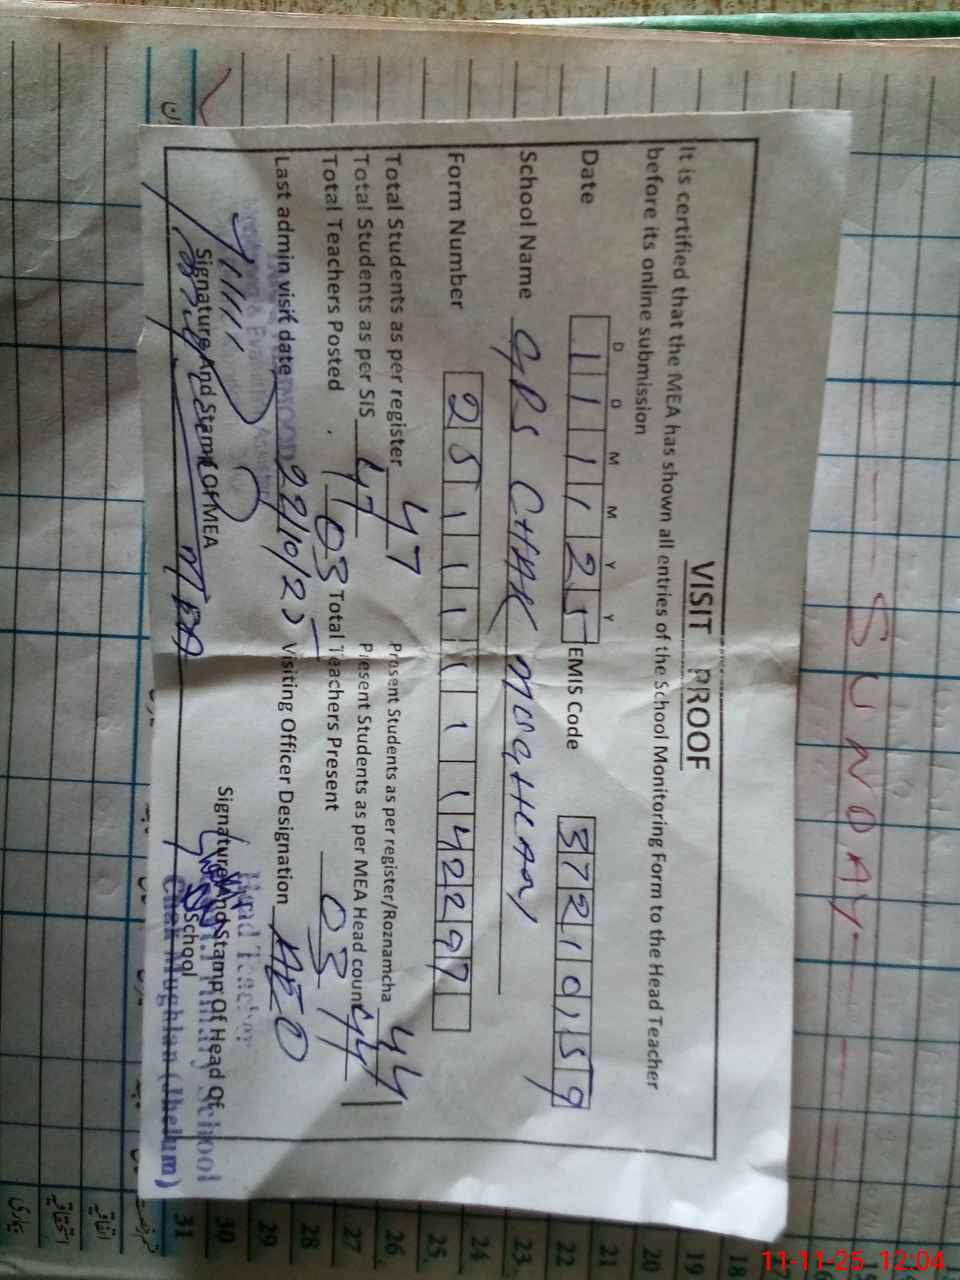 VISIT PROOF
It is certified that the MEA has shown all entries of the School Monitoring Form to the Head Teacher
before its online submission
D D M M Y Y
Date 1 1 1 1 2 5 EMIS Code 3 7 2 1 0 1 5 9
School Name GPS CHAK MUGHLAN
Form Number 2 5 1 1 1 1 1 1 4 2 2 9 7
Total Students as per register 47 Present Students as per register/Roznamcha 44
Total Students as per SIS 47 Present Students as per MEA Head count 44
Total Teachers Posted 03 Total Teachers Present 03
Last admin visit date 22/10/25 Visiting Officer Designation AEO
Signature And Stamp Of MEA
MEA
Signature And Stamp Of Head Of
School
Head Teacher
Primary School
Chak Mughlan (Jhelum)
SUNDAY
18
19
20
21
22
23.
24
25.
26.
27
28
29
30
31
اتفاقیہ
استحقاقیہ
بیماری
11-11-25 12:04